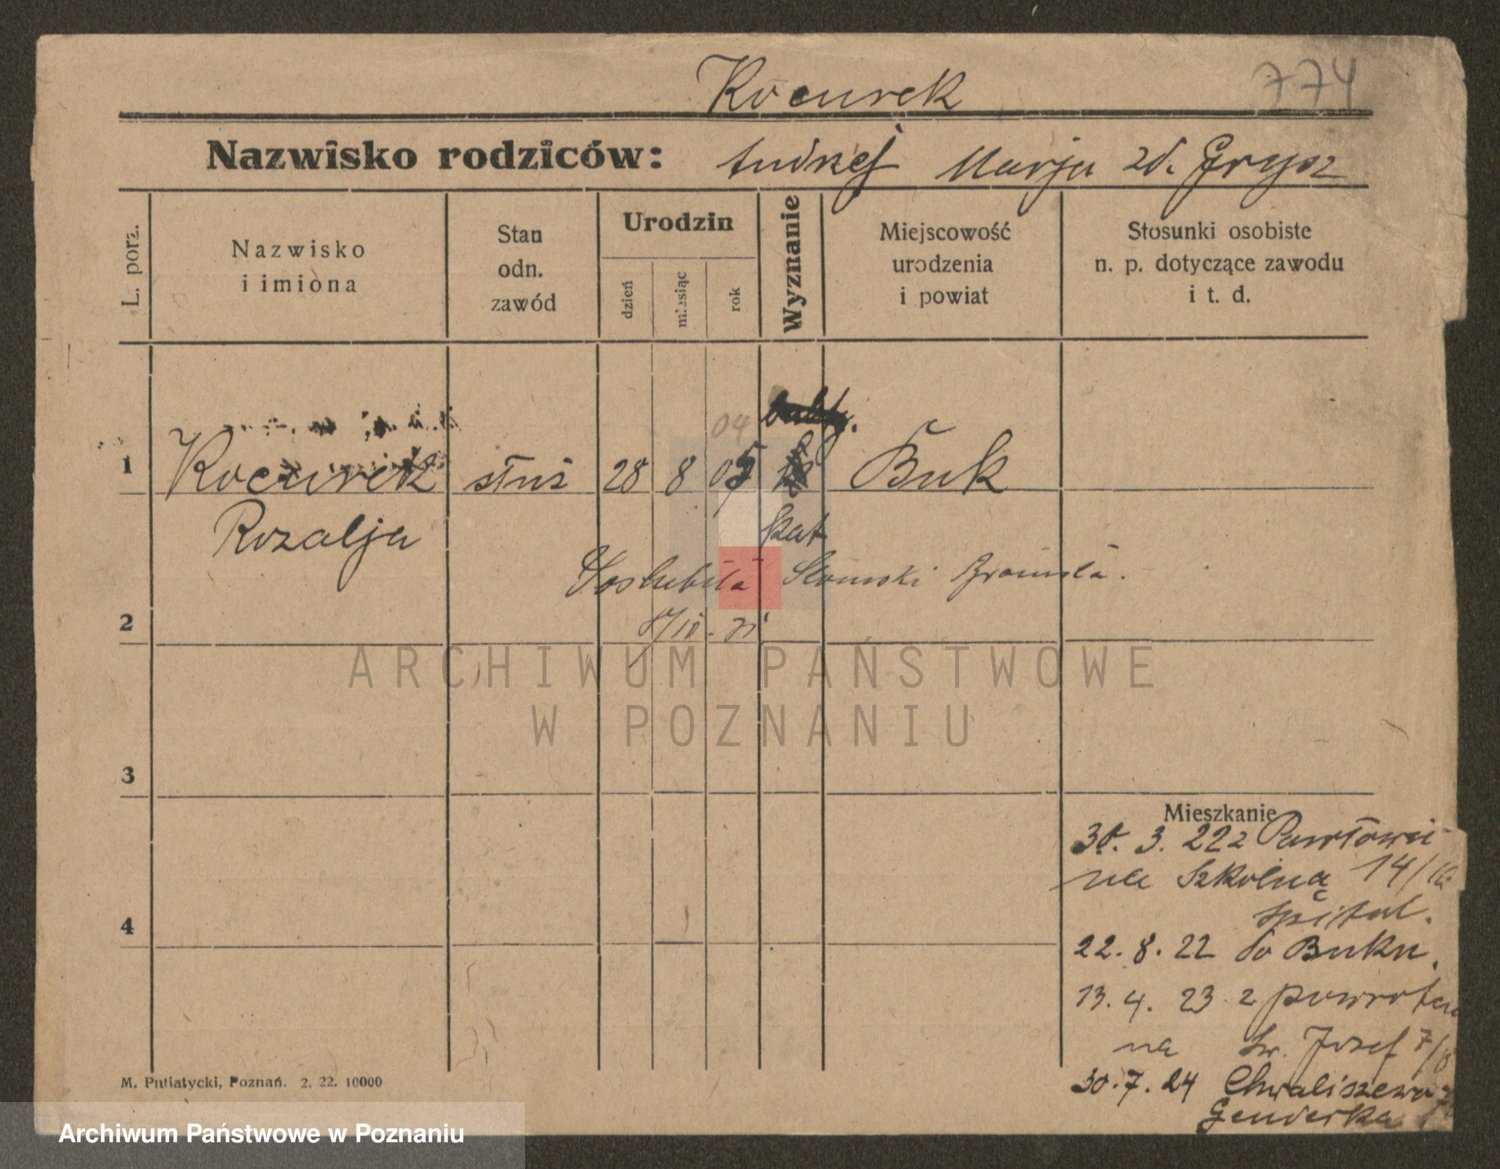 Kocurek
774
Nazwisko rodziców: Andrzej Marja zd. Grysz
L. porz.
Nazwisko
i imiona
Stan
odn.
zawód
Urodzin
dzień
miesiąc
rok
Wyznanie
Miejscowość
urodzenia
i powiat
Stosunki osobiste
n. p. dotyczące zawodu
i t. d.
04
1 Kocurek służ 28 8 05 Buk
Rozalja
kat
Poślubiła Słomski
2
ARCHIWUM PAŃSTWOWE
W POZNANIU
3
Mieszkanie
30. 3. 22 z
na Szkolną 14/
szpital.
4
22. 8. 22 do Buku.
13. 4. 23 z powrotem
na Św. Józef 7/8
30. 7. 24 Chwaliszewo
Genderka
M. Putiatycki, Poznań. 2. 22. 10000
Archiwum Państwowe w Poznaniu